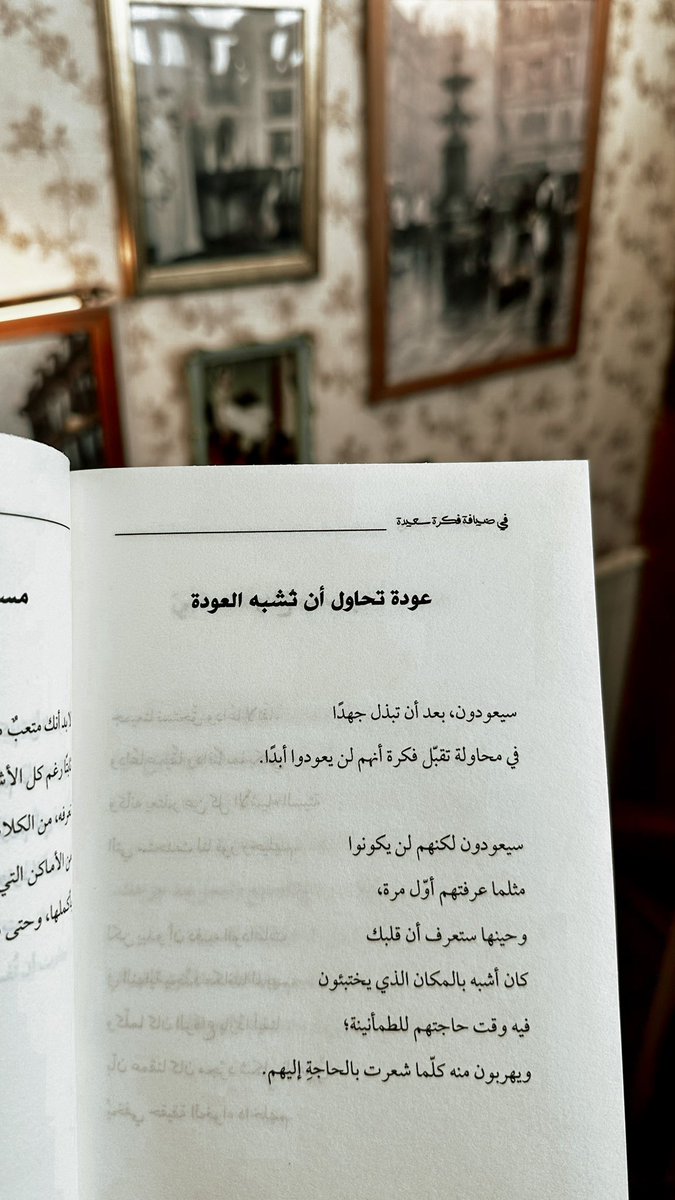 في ضيافة فكرة سعيدة
عودة تحاول أن تشبه العودة
سيعودون، بعد أن تبذل جهدًا
في محاولة تقبّل فكرة أنهم لن يعودوا أبدًا.
سيعودون لكنهم لن يكونوا
مثلما عرفتهم أوّل مرة،
وحينها ستعرف أن قلبك
كان أشبه بالمكان الذي يختبئون
فيه وقت حاجتهم للطمأنينة؛
ويهربون منه كلّما شعرت بالحاجةِ إليهم.
أنك متعبٌ
رغم كل
من الكلا
الأماكن التي
وحتى